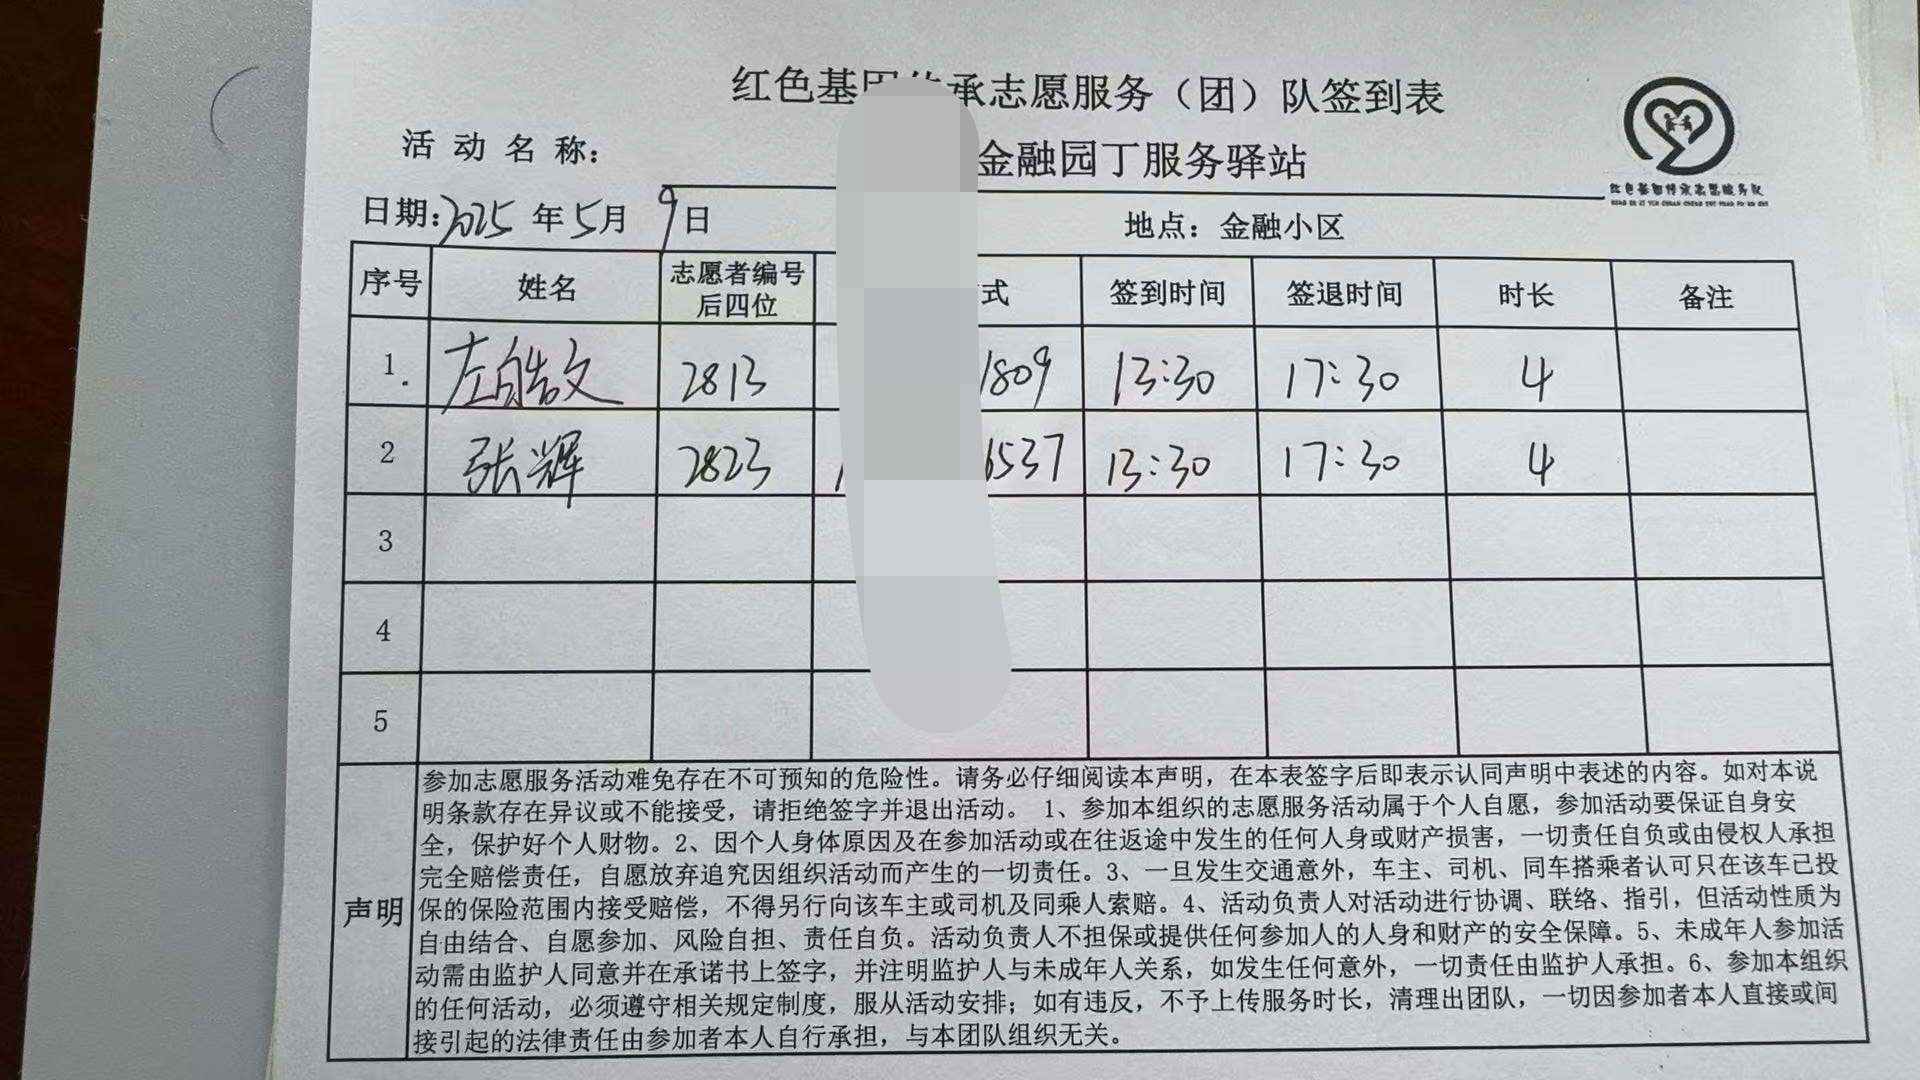 红色基因传承志愿服务（团）队签到表
活动名称：
金融园丁服务驿站
红色基因传承志愿服务队
日期：2025年5月9日
地点：金融小区
序号 姓名 志愿者编号后四位 式 签到时间 签退时间 时长 备注
1. 左皓文 2813 1809 13:30 17:30 4
2 张辉 2823 6537 13:30 17:30 4
3
4
5
声明
参加志愿服务活动难免存在不可预知的危险性。请务必仔细阅读本声明，在本表签字后即表示认同声明中表述的内容。如对本说
明条款存在异议或不能接受，请拒绝签字并退出活动。 1、参加本组织的志愿服务活动属于个人自愿，参加活动要保证自身安
全，保护好个人财物。2、因个人身体原因及在参加活动或在往返途中发生的任何人身或财产损害，一切责任自负或由侵权人承担
完全赔偿责任，自愿放弃追究因组织活动而产生的一切责任。3、一旦发生交通意外，车主、司机、同车搭乘者认可只在该车已投
保的保险范围内接受赔偿，不得另行向该车主或司机及同乘人索赔。4、活动负责人对活动进行协调、联络、指引，但活动性质为
自由结合、自愿参加、风险自担、责任自负。活动负责人不担保或提供任何参加人的人身和财产的安全保障。5、未成年人参加活
动需由监护人同意并在承诺书上签字，并注明监护人与未成年人关系，如发生任何意外，一切责任由监护人承担。6、参加本组织
的任何活动，必须遵守相关规定制度，服从活动安排；如有违反，不予上传服务时长，清理出团队，一切因参加者本人直接或间
接引起的法律责任由参加者本人自行承担，与本团队组织无关。